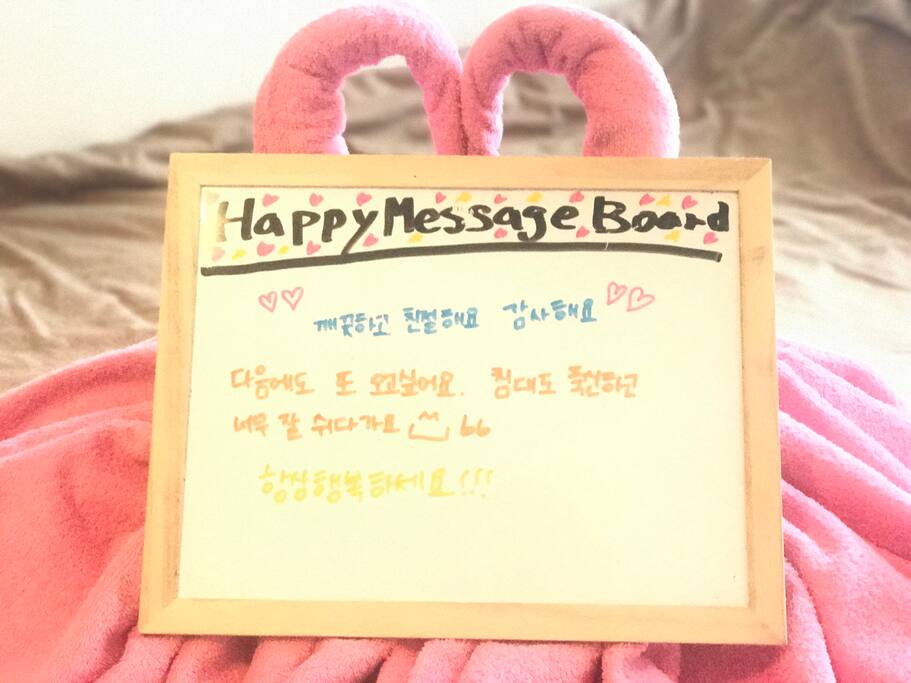 Happy Message Board
깨끗하고 친절해요 감사해요
다음에도 또 오고싶어요. 침대도 푹신하고
너무 잘 쉬다가요
항상행복하세요!!!